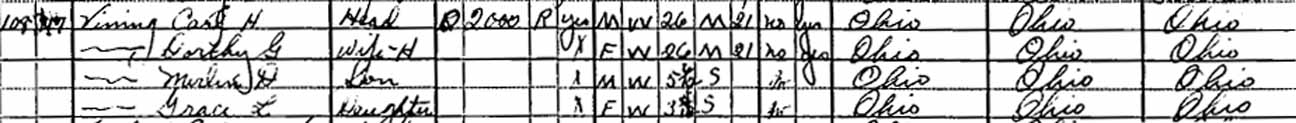 108 Vining Carl H Head O 2000 R yes M W 26 M 21 no yes Ohio Ohio Ohio
— Dorthy G Wife-H X F W 26 M 21 no yes Ohio Ohio Ohio
— Merlin D Son X M W 5 S Ohio Ohio Ohio
— Grace L Daughter X F W 3 S Ohio Ohio Ohio